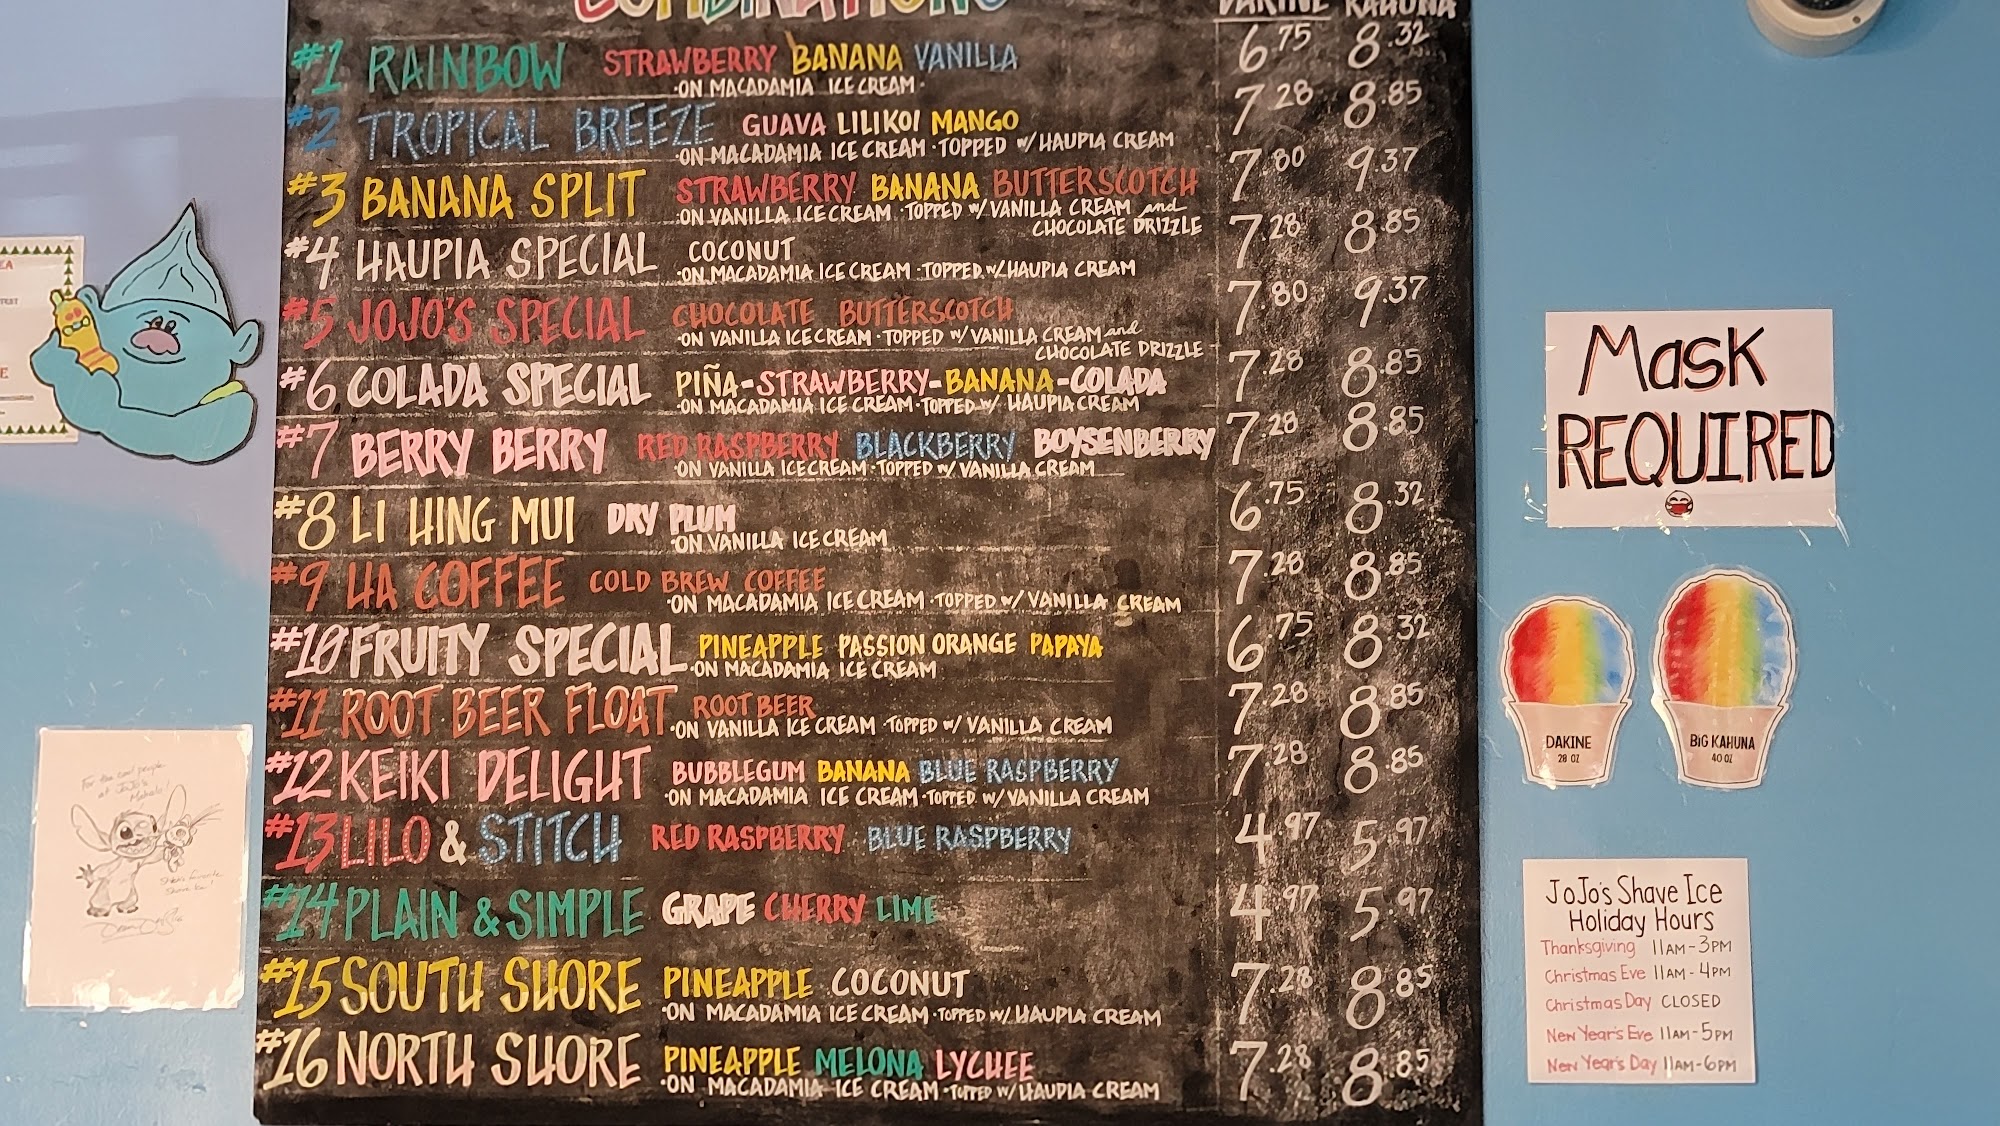 COMBINATIONS DAKINE KAHUNA
#1 RAINBOW STRAWBERRY BANANA VANILLA 6.75 8.32
·ON MACADAMIA ICE CREAM·
#2 TROPICAL BREEZE GUAVA LILIKOI MANGO 7.28 8.85
·ON MACADAMIA ICE CREAM·TOPPED W/ HAUPIA CREAM
#3 BANANA SPLIT STRAWBERRY BANANA BUTTERSCOTCH 7.80 9.37
·ON VANILLA ICE CREAM·TOPPED W/ VANILLA CREAM and
CHOCOLATE DRIZZLE
#4 HAUPIA SPECIAL COCONUT 7.28 8.85
·ON MACADAMIA ICE CREAM·TOPPED W/ HAUPIA CREAM
#5 JOJO'S SPECIAL CHOCOLATE BUTTERSCOTCH 7.80 9.37
·ON VANILLA ICE CREAM·TOPPED W/ VANILLA CREAM and
CHOCOLATE DRIZZLE
#6 COLADA SPECIAL PIÑA-STRAWBERRY-BANANA-COLADA 7.28 8.85
·ON MACADAMIA ICE CREAM·TOPPED W/ HAUPIA CREAM
#7 BERRY BERRY RED RASPBERRY BLACKBERRY BOYSENBERRY 7.28 8.85
·ON VANILLA ICE CREAM·TOPPED W/ VANILLA CREAM
#8 LI HING MUI DRY PLUM 6.75 8.32
·ON VANILLA ICE CREAM
#9 HA COFFEE COLD BREW COFFEE 7.28 8.85
·ON MACADAMIA ICE CREAM·TOPPED W/ VANILLA CREAM
#10 FRUITY SPECIAL PINEAPPLE PASSION ORANGE PAPAYA 6.75 8.32
·ON MACADAMIA ICE CREAM
#11 ROOT BEER FLOAT ROOT BEER 7.28 8.85
·ON VANILLA ICE CREAM·TOPPED W/ VANILLA CREAM
#12 KEIKI DELIGHT BUBBLEGUM BANANA BLUE RASPBERRY 7.28 8.85
·ON MACADAMIA ICE CREAM·TOPPED W/ VANILLA CREAM
#13 LILO & STITCH RED RASPBERRY BLUE RASPBERRY 4.97 5.97
#14 PLAIN & SIMPLE GRAPE CHERRY LIME 4.97 5.97
#15 SOUTH SHORE PINEAPPLE COCONUT 7.28 8.85
·ON MACADAMIA ICE CREAM·TOPPED W/ HAUPIA CREAM
#16 NORTH SHORE PINEAPPLE MELONA LYCHEE 7.28 8.85
·ON MACADAMIA ICE CREAM·TOPPED W/ HAUPIA CREAM
For the cool people
at JoJo's
Mahalo!
Mask
REQUIRED
DAKINE
28 OZ
BIG KAHUNA
40 OZ
JoJo's Shave Ice
Holiday Hours
Thanksgiving 11AM-3PM
Christmas Eve 11AM-4PM
Christmas Day CLOSED
New Year's Eve 11AM-5PM
New Year's Day 11AM-6PM